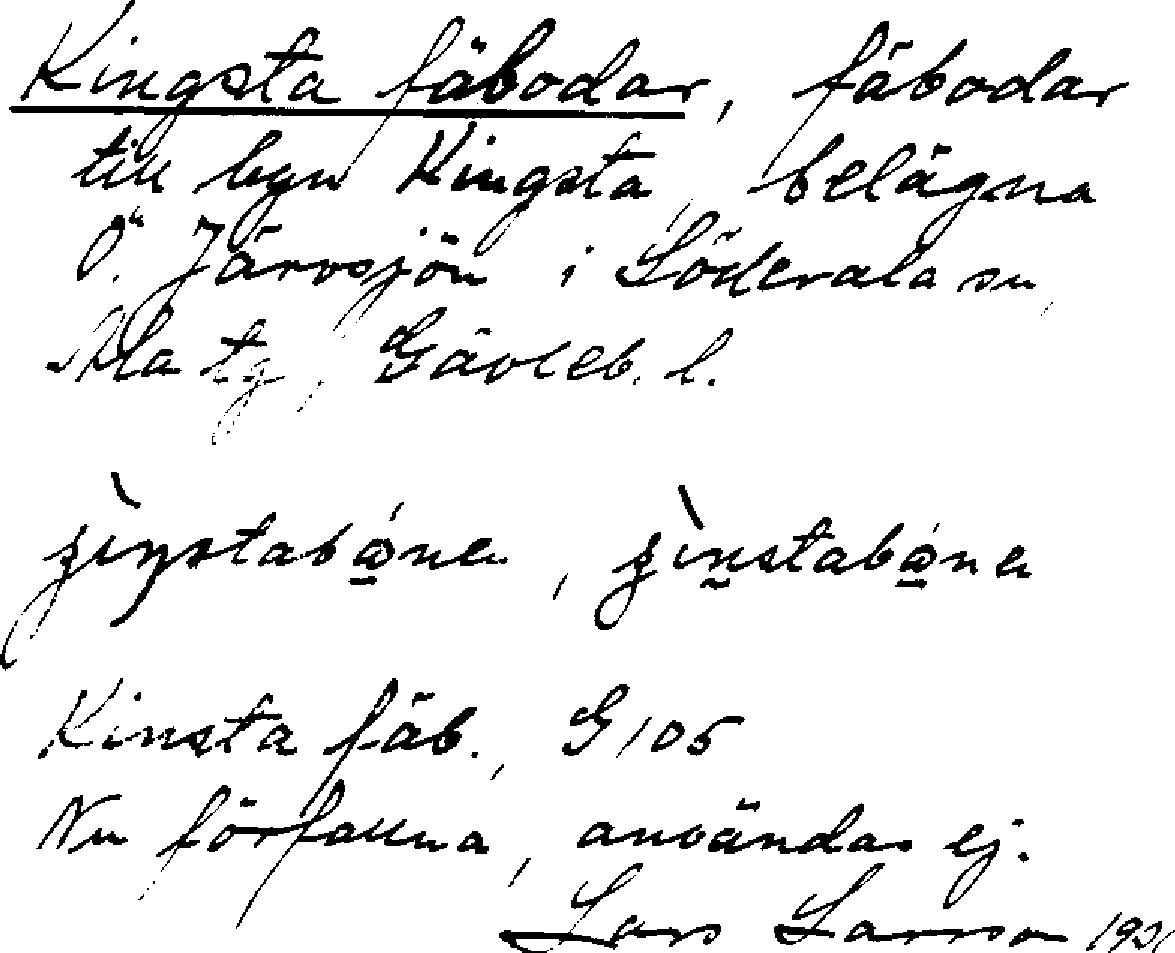 Kingsta fäbodar, fäbodar
till byn Kingsta, belägna
Ö. Järvsjön i Söderala sn,
Ala tg, Gävleb. l.
Kinsta fäb., G 105
Nu förfallna, användas ej.
Lars Larsson